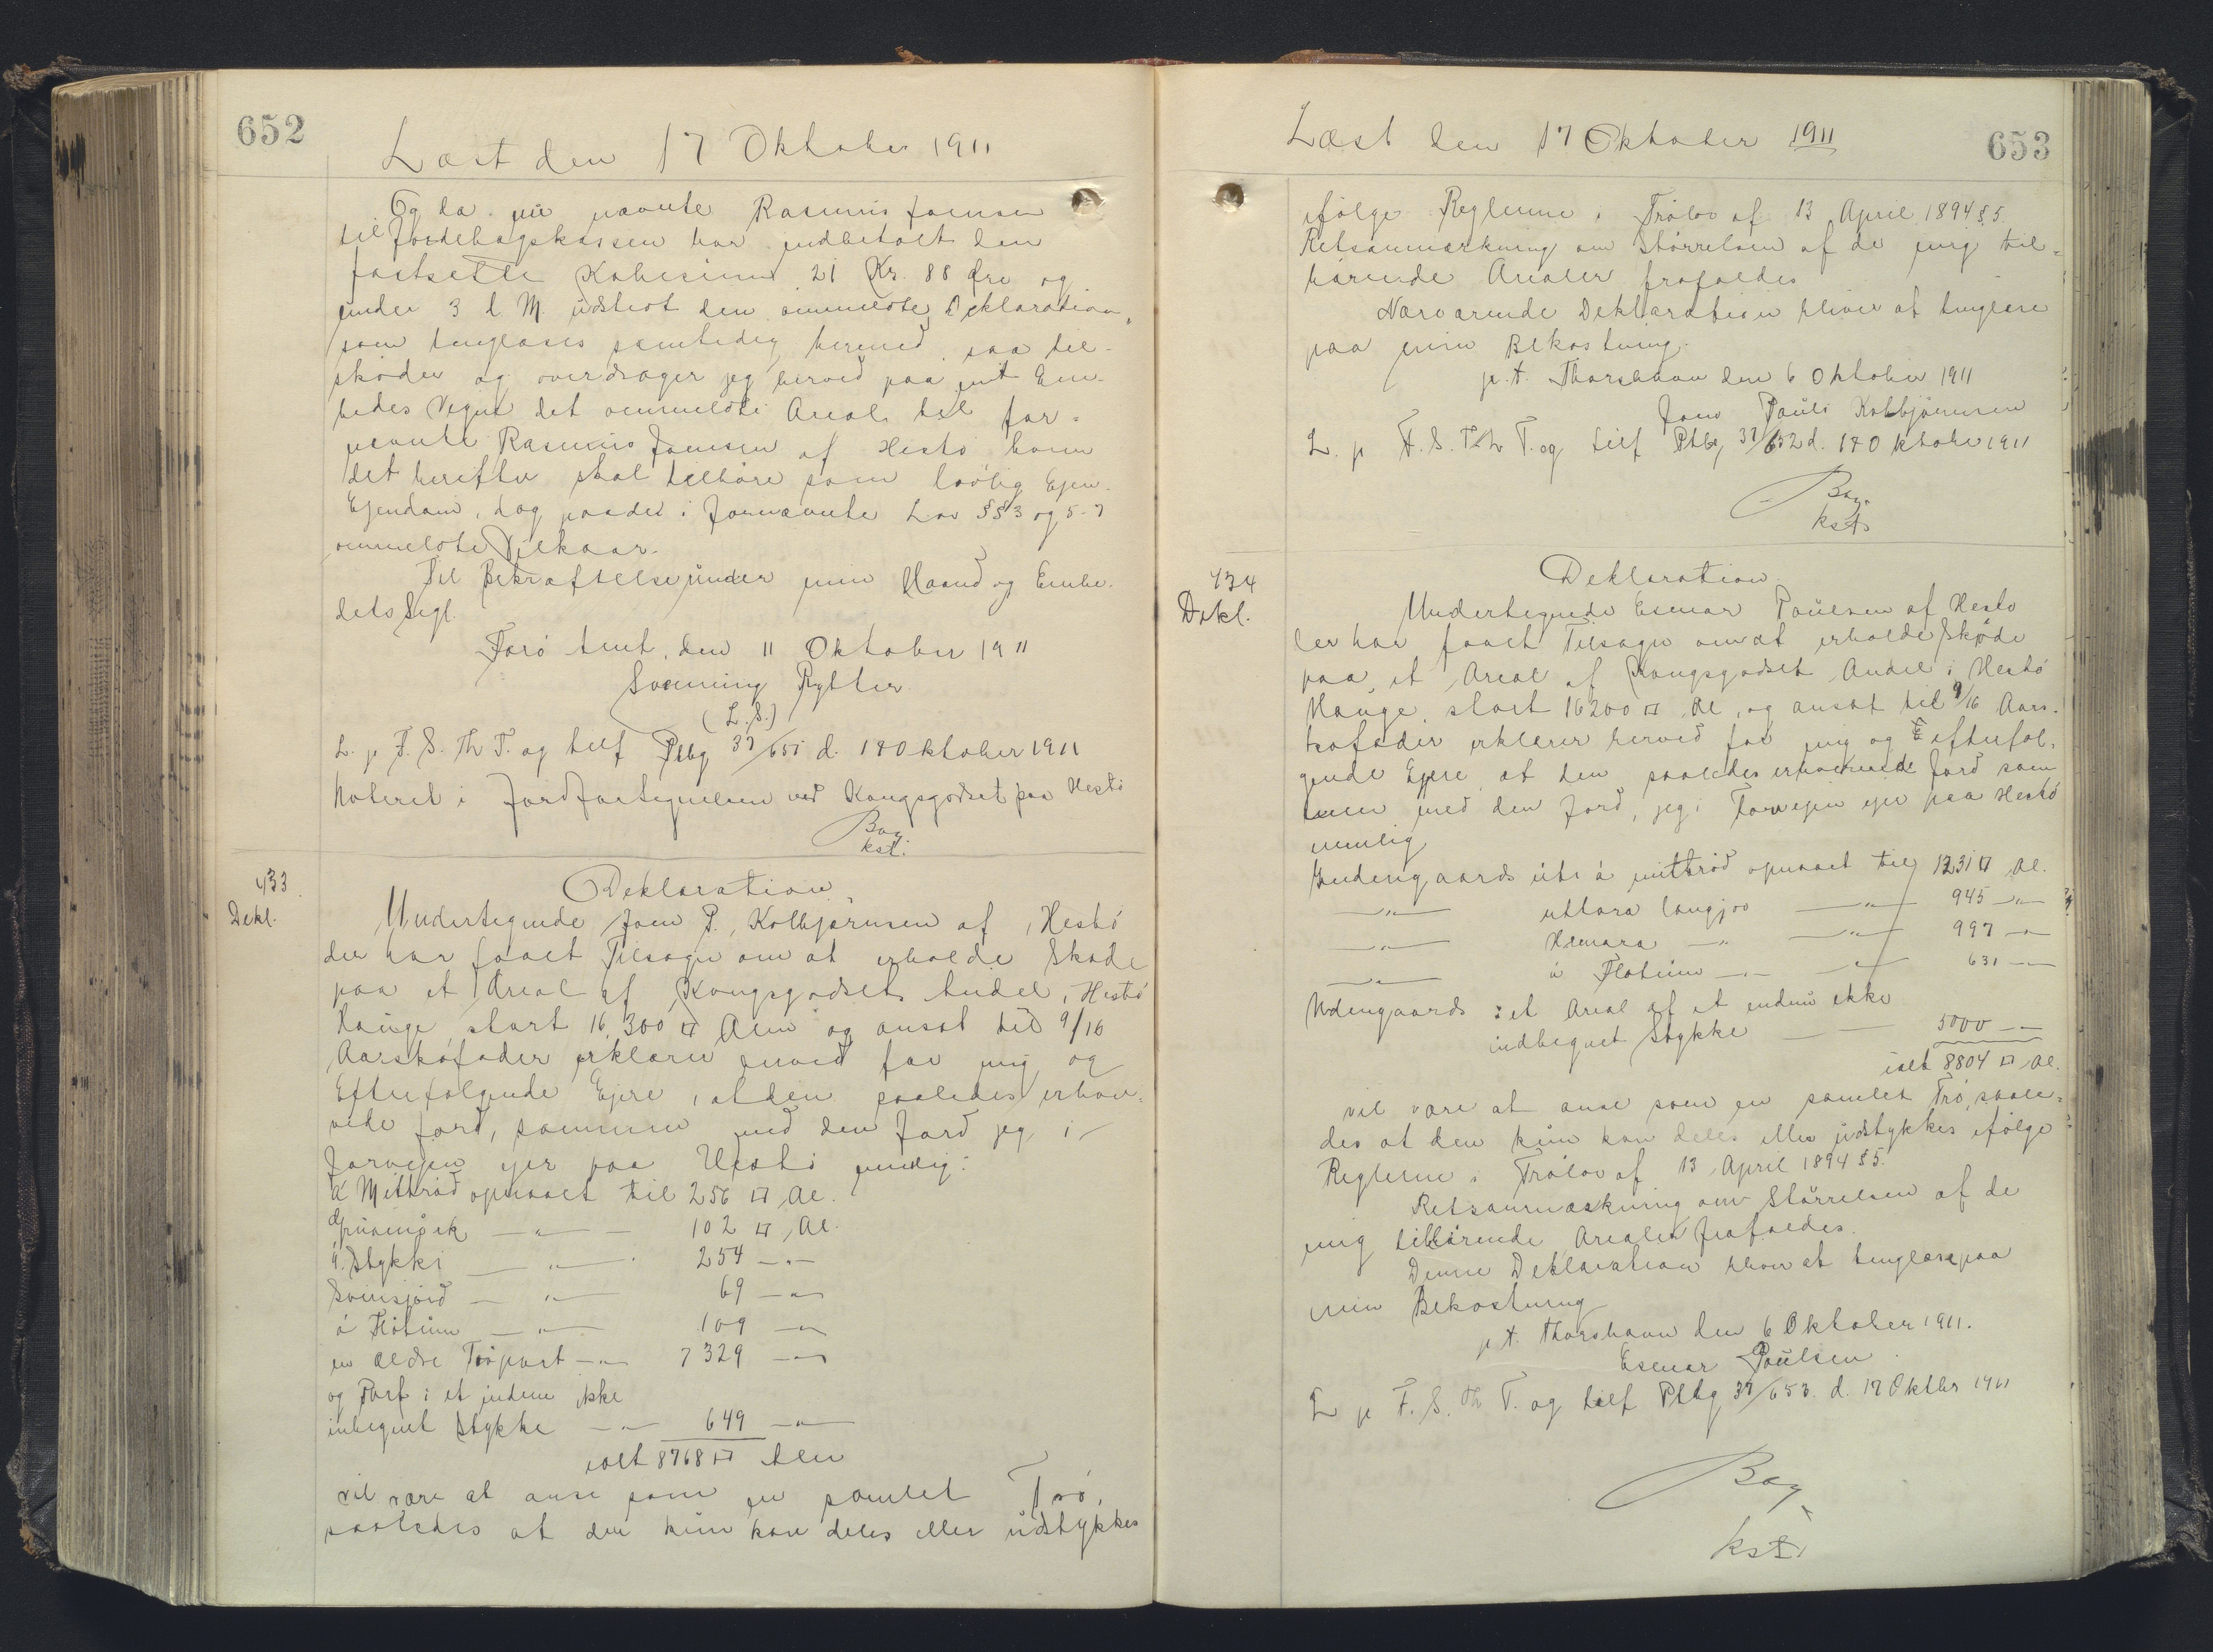 652
Læst den 17 Oktober 1911
Og da nu nævnte Rasmus Joensen
til Jordebogskassen har indbetalt den
fastsatte Købesum 21 Kr. 88 Øre og
under 3 d. M. udstedt den ommeldte Deklaration,
som tinglæses samtidig hermed, saa til-
skøder og overdrager jeg herved paa mit Em-
bedes Vegne det ommeldte Areal til for-
nævnte Rasmus Joensen af Hestø, hvem
det herefter skal tilhøre som lovlig Ejen-
Ejendom, dog paa de i fornævnte Lov §§ 3 og 5-7
ommeldte Vilkaar.
Til Bekræftelse under min Haand og Embe-
dets Segl.
Færø Amt, den 11 Oktober 1911
Svenning Rytter
(L.S.)
L. p. F. S. Th T. og tilf Ptbg 37/651 d. 17 Oktober 1911
Noteret i Jordfortegnelsen ved Kongsgodset paa Hestø
Bay
kst.
433
Dekl.
Deklaration
Undertegnede Joen P. Kolbjørnsen af Hestø
der har faaet Tilsagn om at erholde Skøde
paa et Areal af Kongsgodsets Andel i Hestø
Hauge, stort 16,300 □ Alen og ansat til 9/16
Aarskofoder erklærer herved for mig og
Efterfølgende Ejere, at den saaledes erhver-
vede Jord, sammen med den Jord jeg i
Forvejen ejer paa Hestø nemlig:
á Mittrád opmaaet til 256 □ Al.
Grunningsek — " — 102 □ Al.
á. Stykki — " — 254 — " —
Svinsjørd — " — 69 — " —
á Fløtinum — " — 109 — " —
en ældre Trøpart — " — 7329 — " —
og Part i et endnu ikke
inhegnet Stykke — " — 649 — " —
ialt 8768 □ Alen
vil være at anse som en samlet Trø,
saaledes at den kun kan deles eller udstykkes
653
Læst den 17 Oktober 1911
ifølge Reglerne i Trølov af 13 April 1894 § 5.
Retsanmærkning om Størrelsen af de mig til-
hørende Arealer frafaldes
Nærværende Deklaration bliver at tinglæse
paa min Bekostning.
p.t. Thorshavn den 6 Oktober 1911
Joen Pauli Kolbjørnsen
L. p F. S. Th T. og tilf Ptbg 37/652 d. 17 Oktober 1911
Bay.
kst.
434
Dekl.
Deklaration.
Undertegnede Esmar Poulsen af Hestø
der har faaet Tilsagn om at erholde Skøde
paa et Areal af Kongsgodset Andel i Hestø
Hauge, stort 16200 □ Al, og ansat til 9/16 Aars-
kofoder erklærer herved for mig og E efterføl-
gende Ejere at den saaledes erhvervede Jord sam
men med den Jord, jeg i Forvejen ejer paa Hestø
nemlig
Indengaards úti á mittrád opmaaet til 1231 □ Al.
— " — uttara langjørd — " — 945 — " —
— " — Hemara — " — — " — 997 — " —
— " — á Fløtinum — " — — " — 631 — " —
Udengaards: et Areal af et endnu ikke
indhegnet Stykke — 5000 — " —
ialt 8804 □ Al.
vil være at anse som en samlet Trø, saale-
des at den kun kan deles eller udstykkes ifølge
Reglerne i Trølov af 13 April 1894 § 5.
Retsanmærkning om Størrelsen af de
mig tilhørende Arealer frafaldes.
Denne Deklaration bliver at tinglæse paa
min Bekostning
p.t. Thorshavn den 6 Oktober 1911.
Esmar Poulsen
L p F. S. Th T. og tilf Ptbg 37/653. d. 17 Oktbr 1911
Bay
kst.